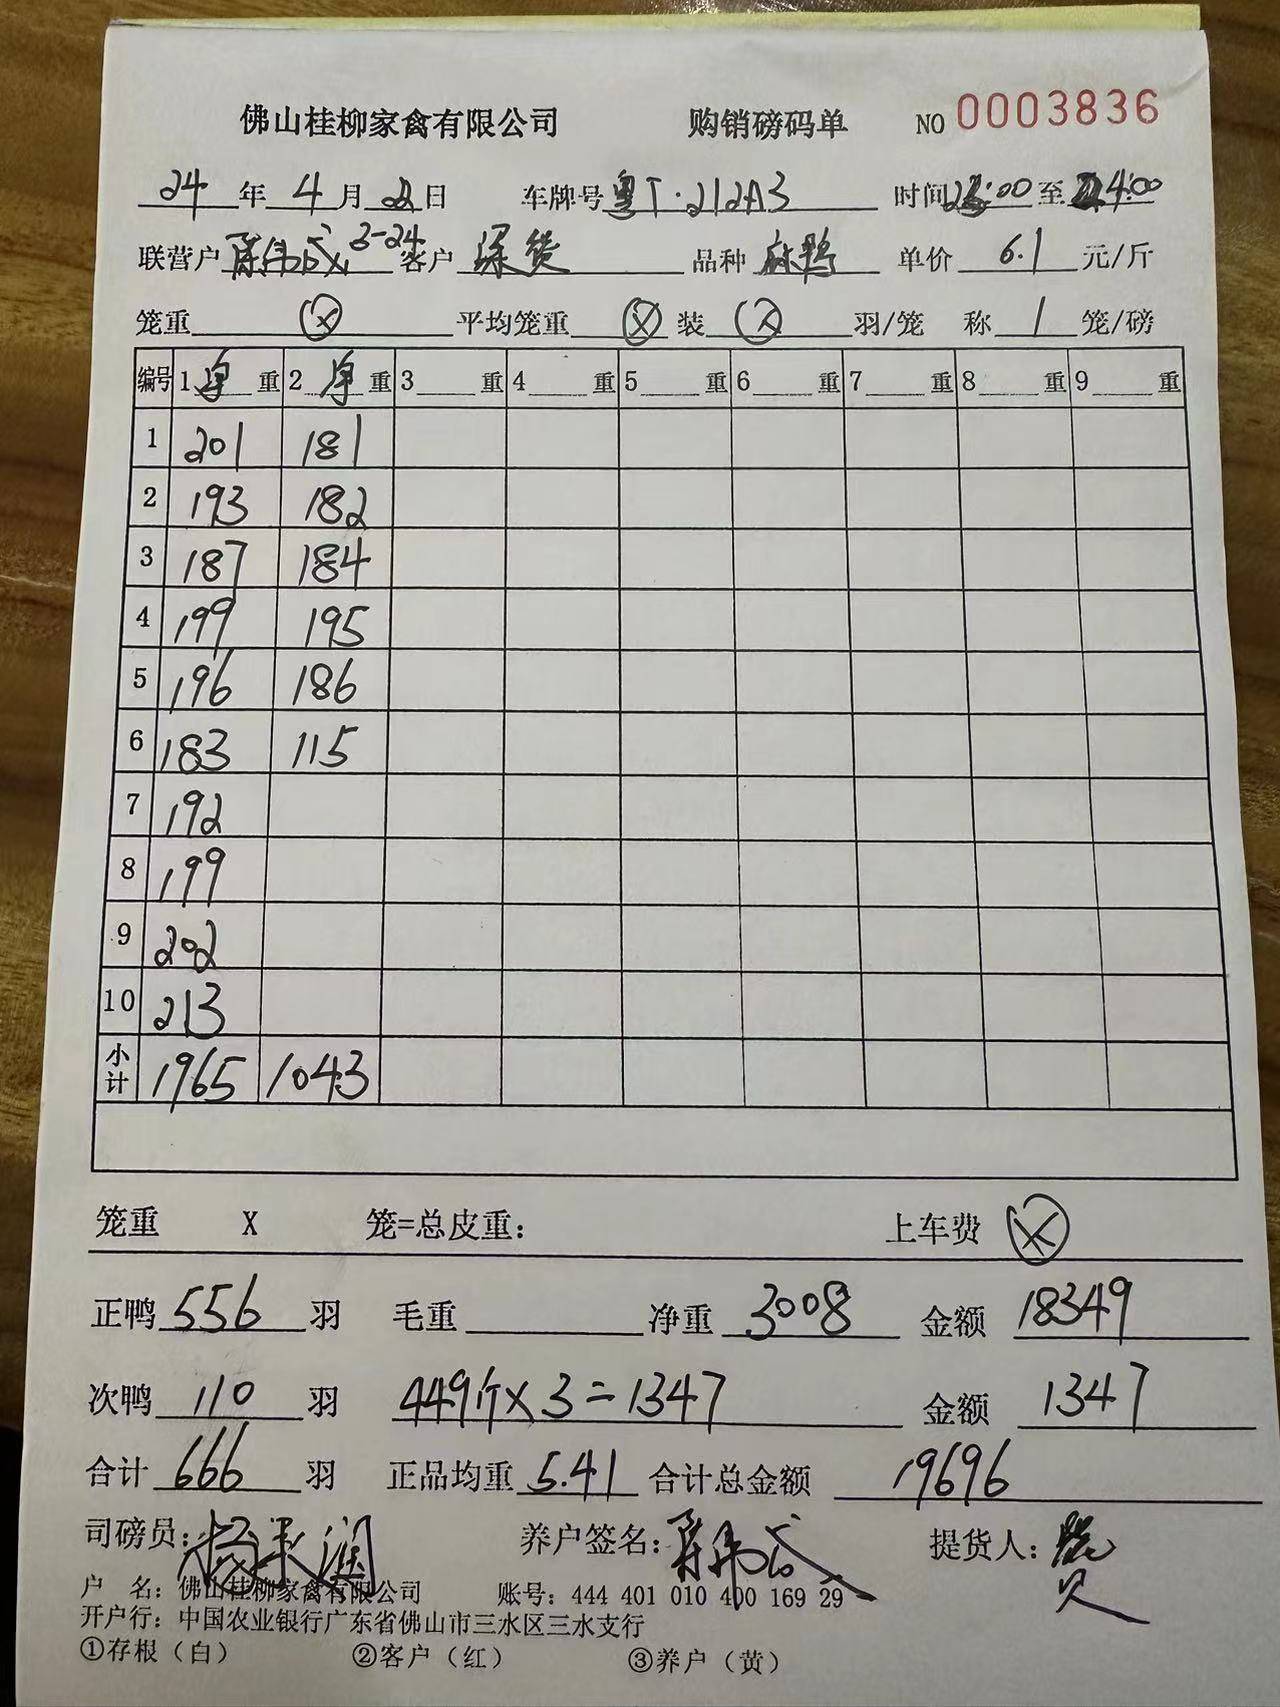 佛山桂柳家禽有限公司 购销磅码单 NO 0003836
24 年 4 月 2 日 车牌号 粤T·212A3 时间 :00 至 24:00
联营户 陈伟成 3-24 客户 深货 品种 麻鸭 单价 6.1 元/斤
笼重 ⓧ 平均笼重 ⓧ 装 ⓧ 羽/笼 称 1 笼/磅
编号 1 净 重 2 净 重 3 重 4 重 5 重 6 重 7 重 8 重 9 重
1 201 181
2 193 182
3 187 184
4 199 195
5 196 186
6 183 115
7 192
8 199
9 202
10 213
小计 1965 1043
笼重 X 笼=总皮重: 上车费 ⓧ
正鸭 556 羽 毛重 净重 3008 金额 18349
次鸭 110 羽 449斤×3=1347 金额 1347
合计 666 羽 正品均重 5.41 合计总金额 19696
司磅员: 养户签名: 陈伟成 提货人:
户 名: 佛山桂柳家禽有限公司 账号: 444 401 010 400 169 29
开户行: 中国农业银行广东省佛山市三水区三水支行
①存根（白） ②客户（红） ③养户（黄）